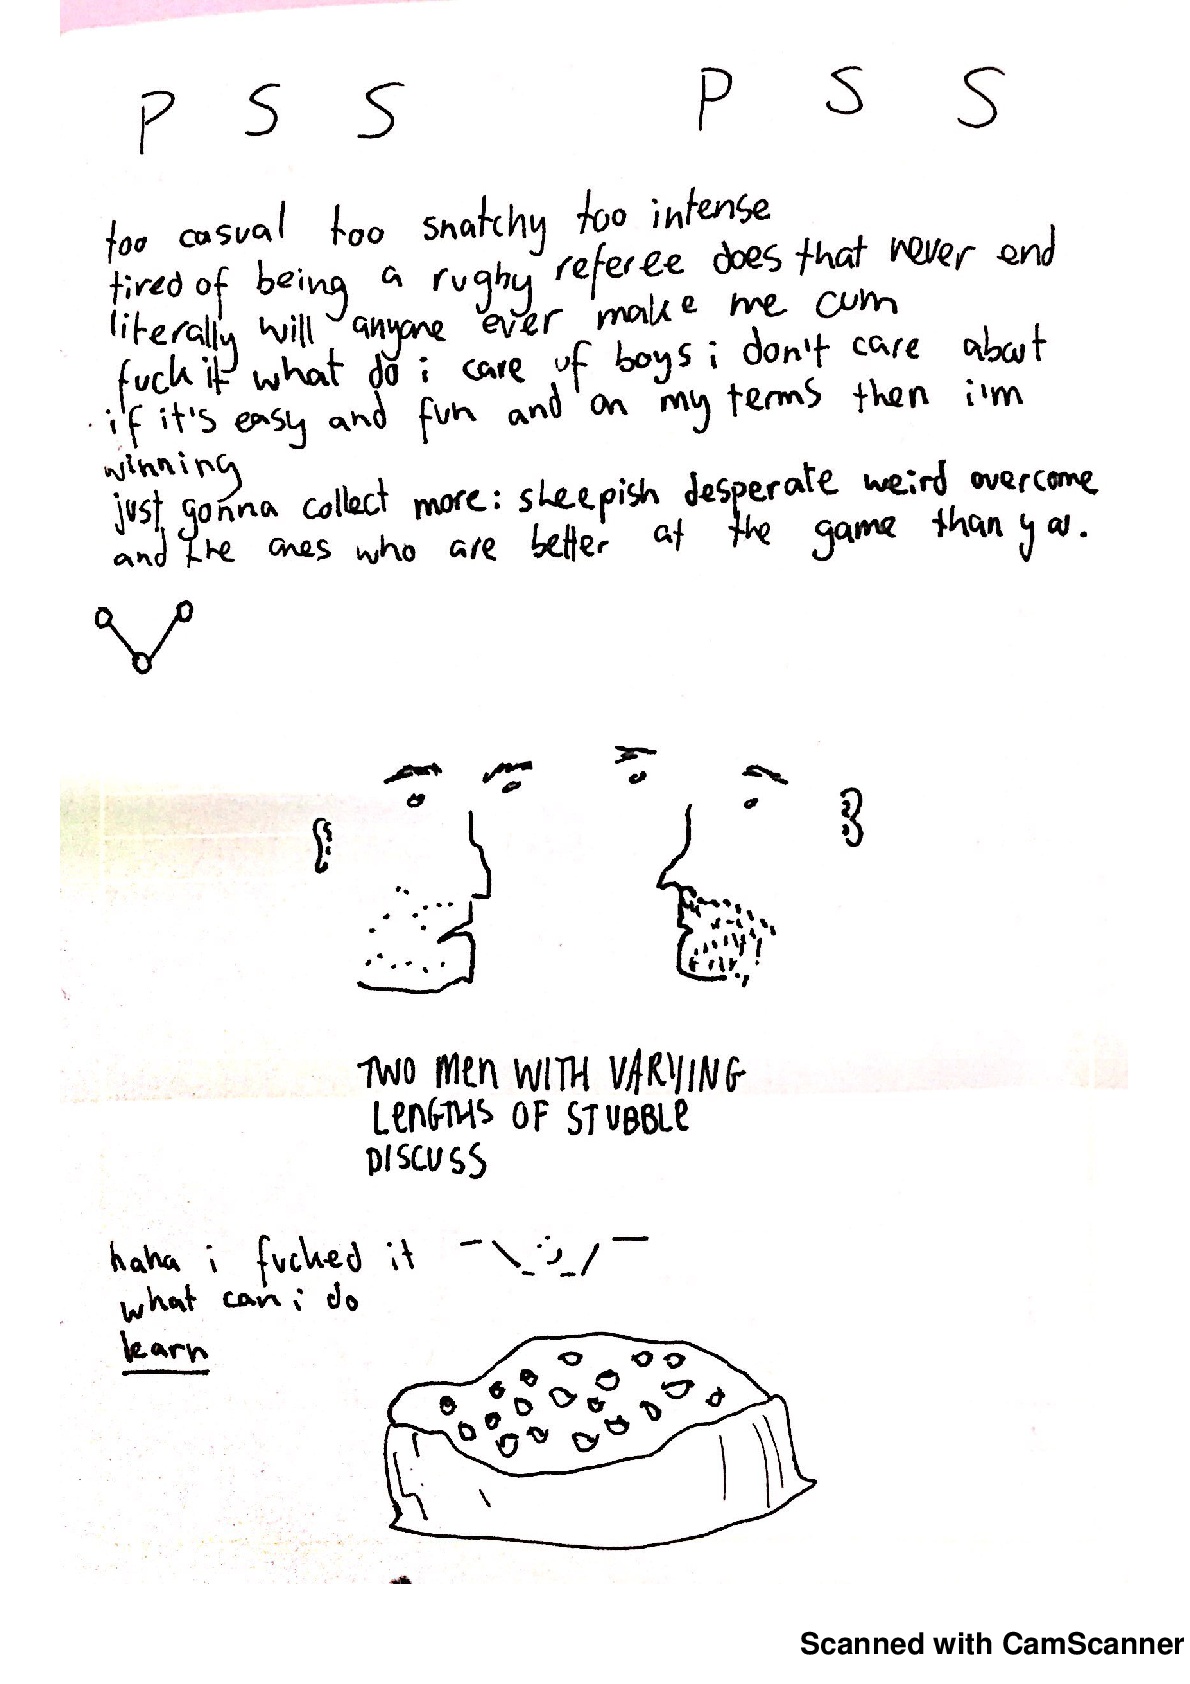 P S S P S S
too casual too snatchy too intense
tired of being a rugby referee does that never end
literally will anyone ever make me cum
fuck it what do i care of boys i don't care about
if it's easy and fun and on my terms then i'm
winning
just gonna collect more: sheepish desperate weird overcome
and the ones who are better at the game than you.
TWO MEN WITH VARYING
LENGTHS OF STUBBLE
DISCUSS
haha i fucked it
what can i do
learn
Scanned with CamScanner